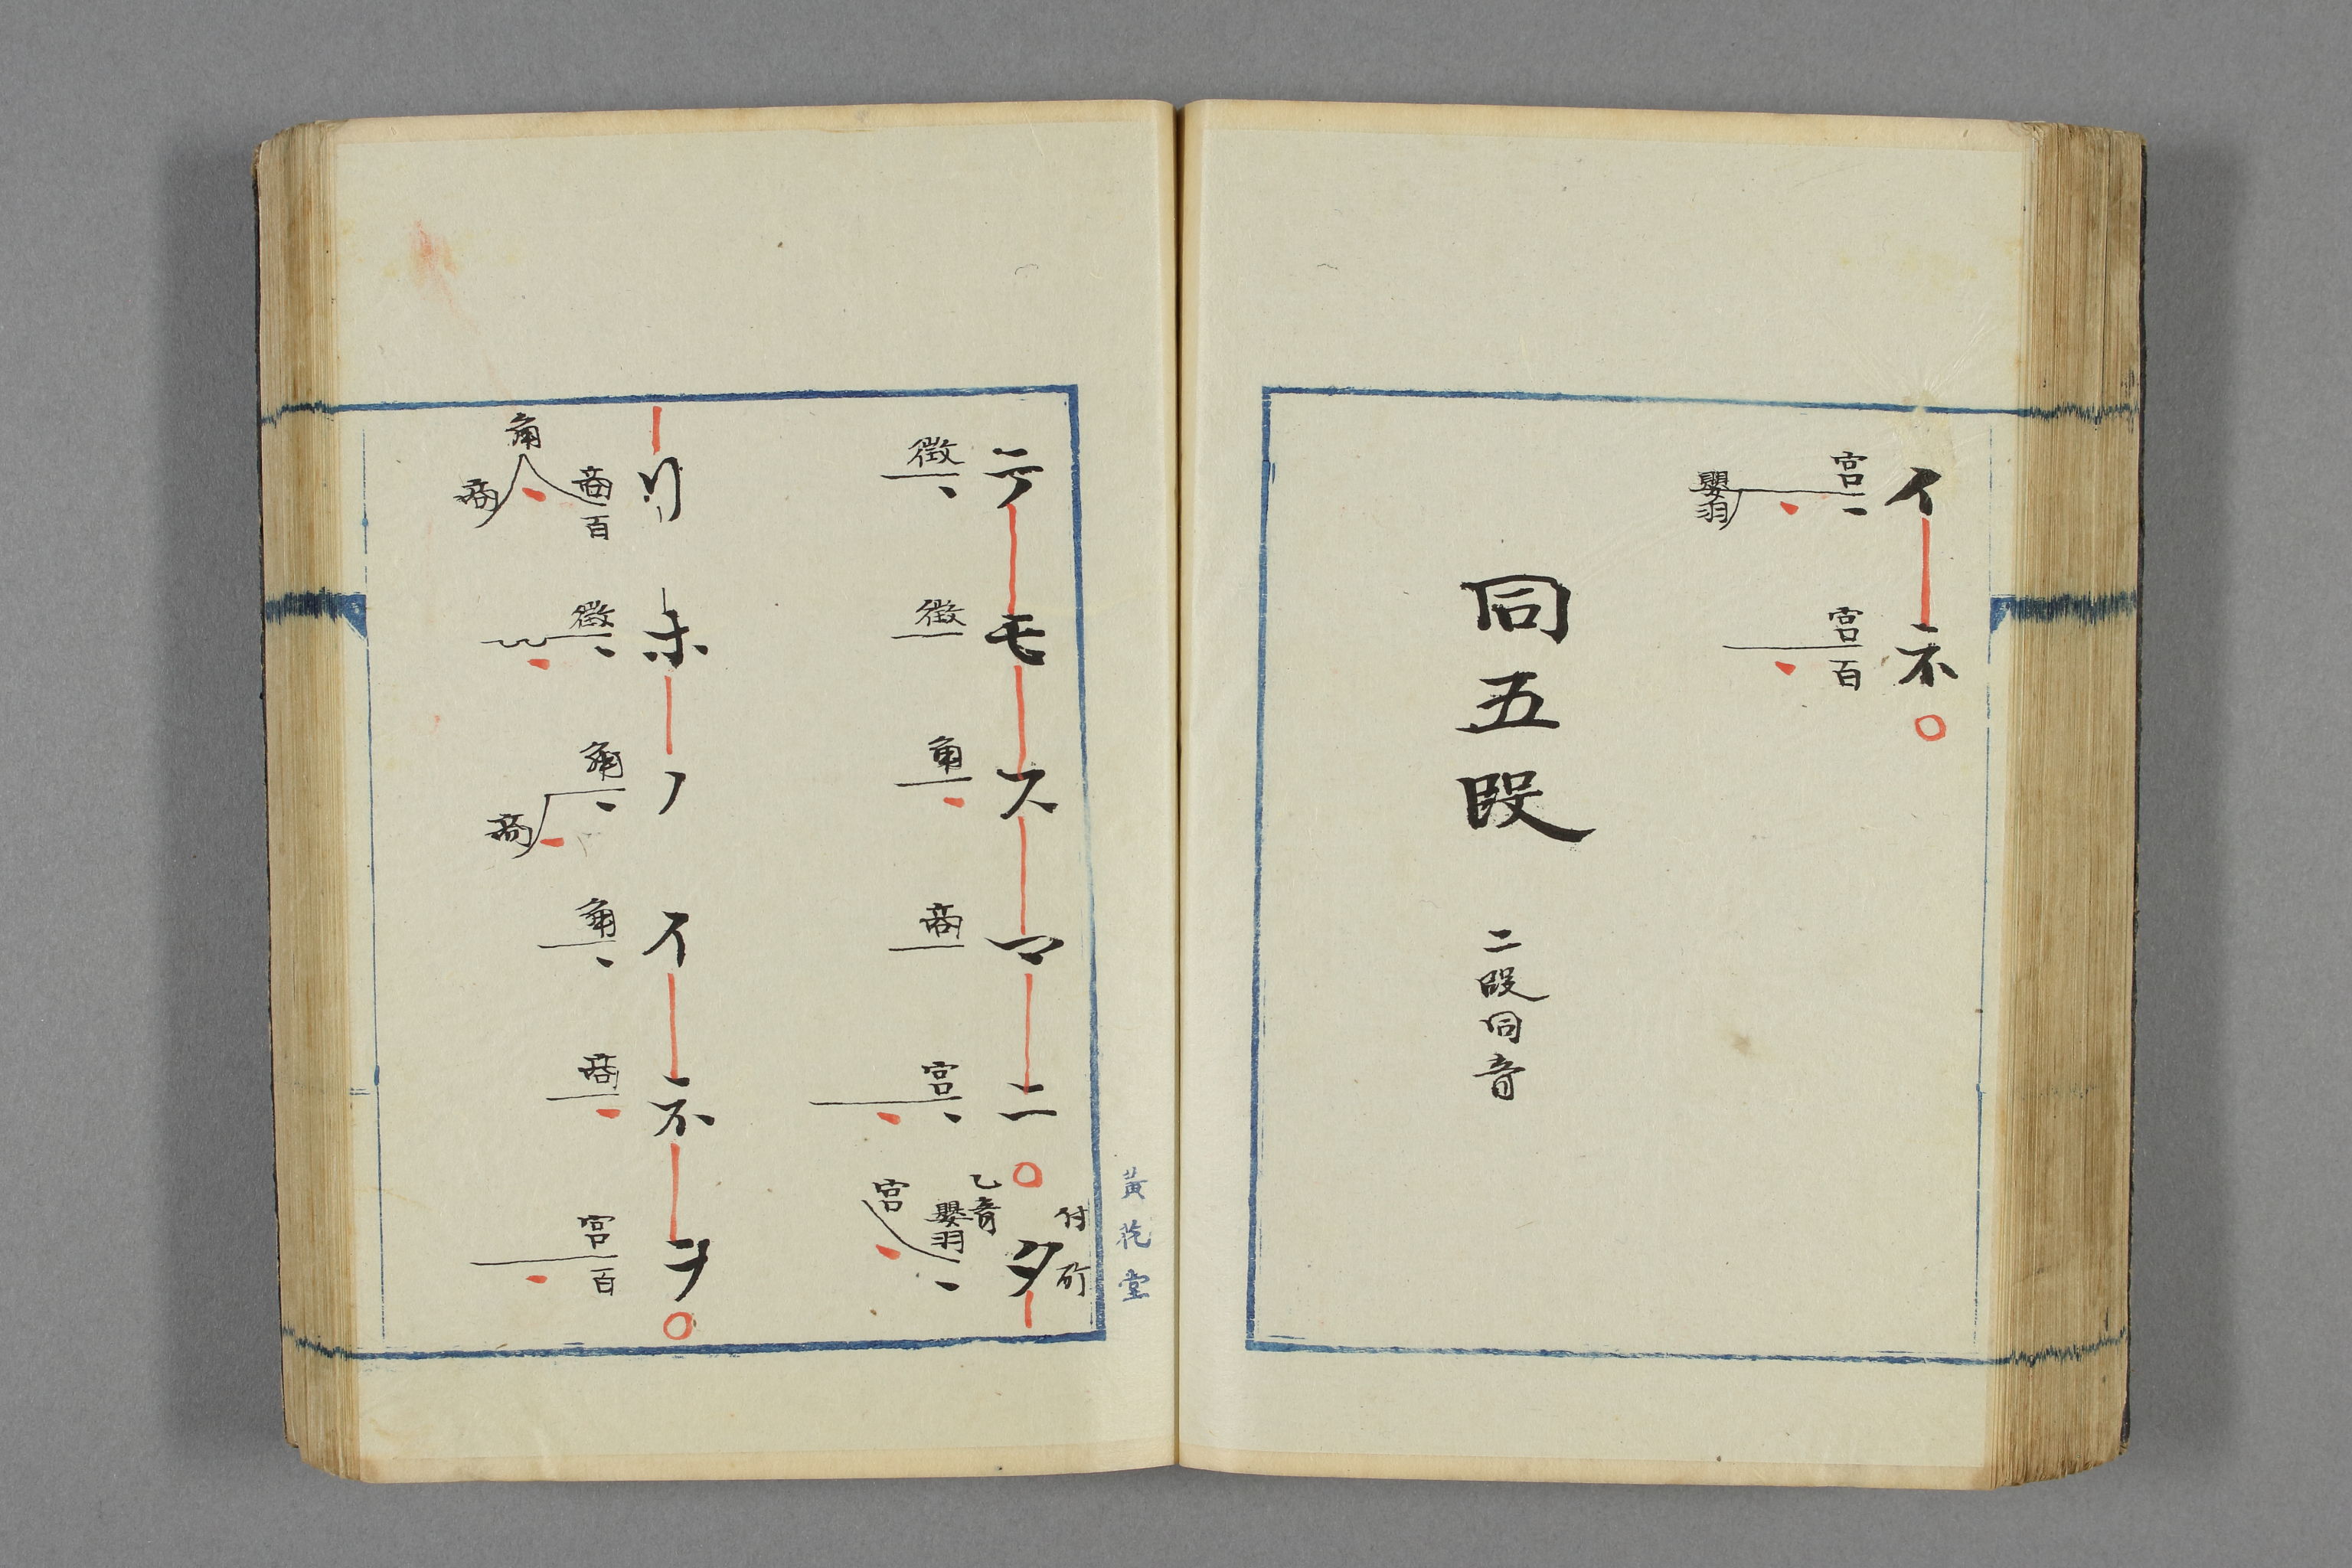 イネ
宮
嬰羽
宮
百
同五段 二段同音
黄花堂
テモスマニタ
付所
徴
徴
角
商
宮
乙音
嬰羽
宮
リホノイネヲ
商
百
角
商
徴
角
商
角
商
宮
百